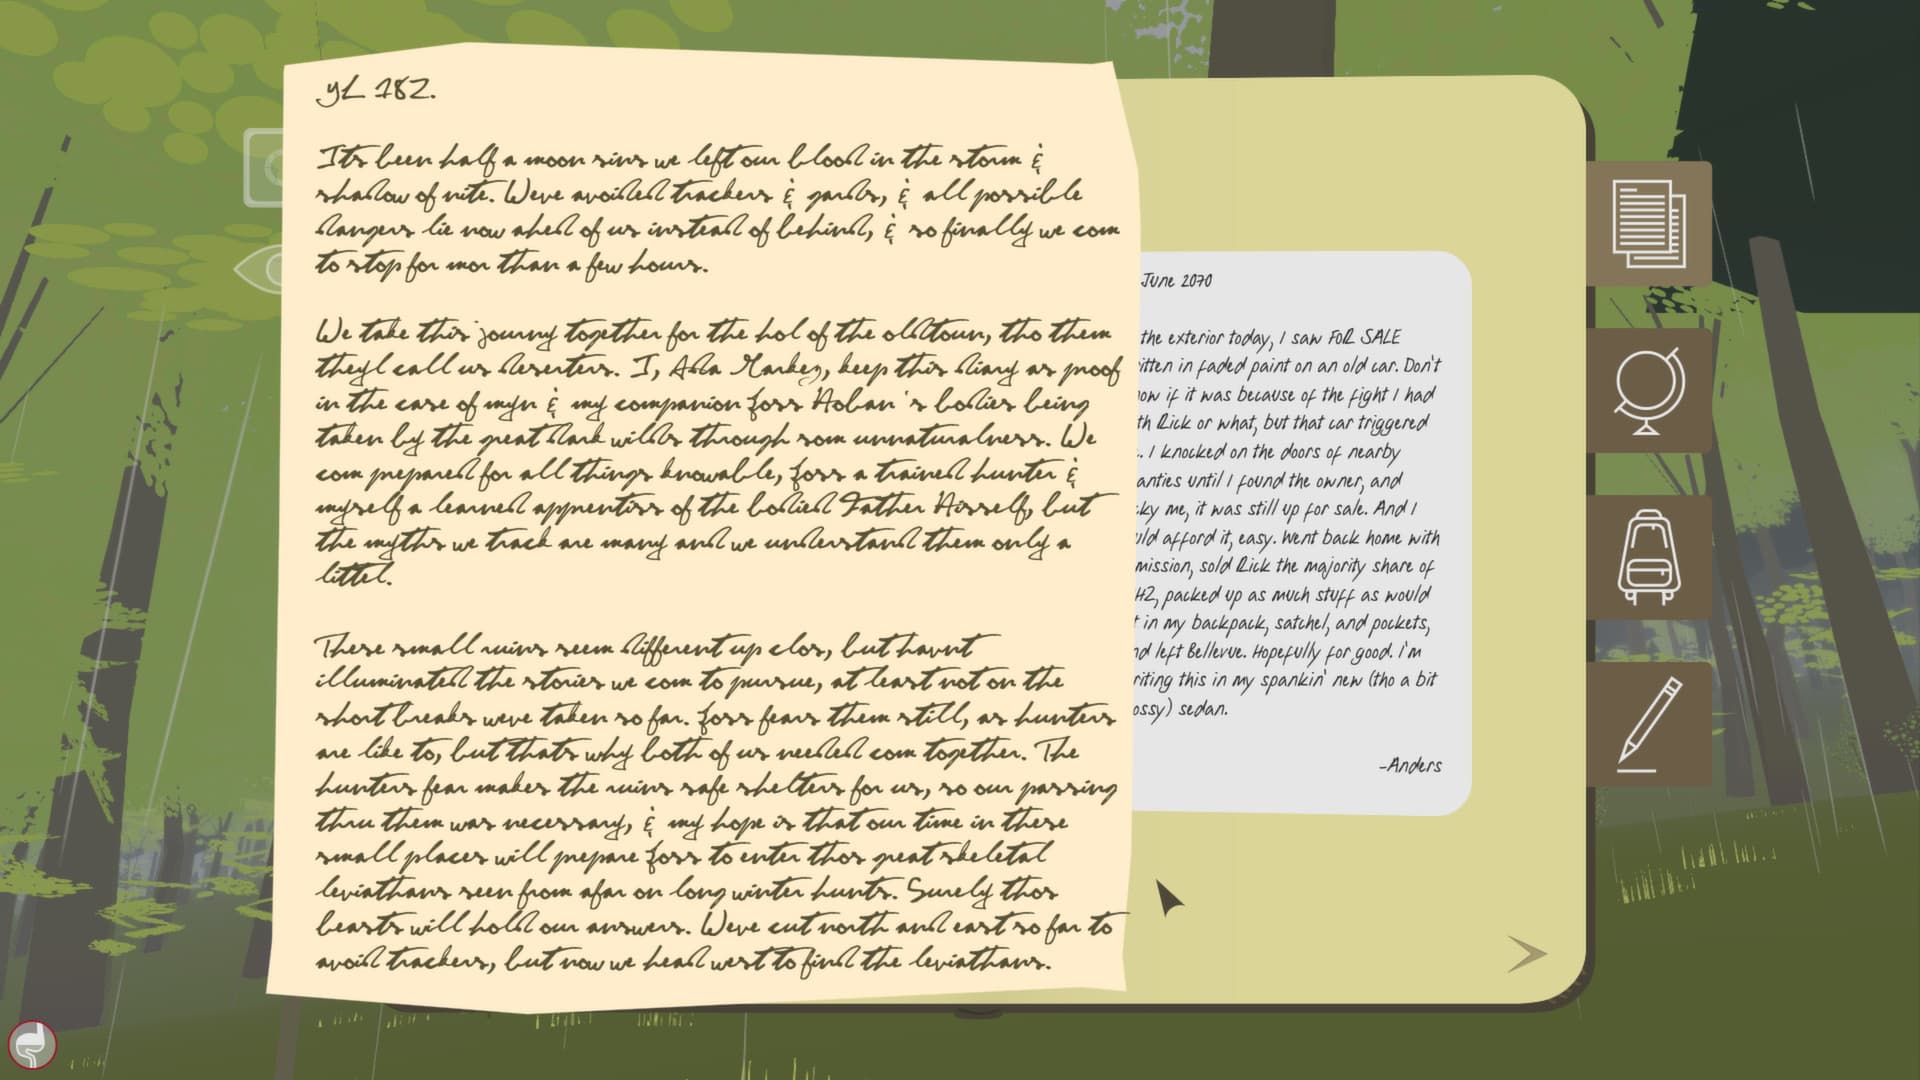 yL 182.
Its been half a moon sins we left our blood in the storm &
shadow of nite. Weve avoided trackers & gards, & all possible
dangers lie now ahed of us insted of behind, & so finally we com
to stop for mor than a few hours.
We take this journy together for the hol of the oldtoun, tho them
theyl call us deserters. I, Ada Markez, keep this diary as proof
in the case of myn & my companion Joss Hoban's bodies being
taken by the great dark wilds through som unnaturalness. We
com prepared for all things knowable, Joss a trained hunter &
myself a learned apprentiss of the bodied Father Hisself, but
the myths we track are many and we understand them only a
littel.
These small ruins seem different up clos, but havnt
illuminated the stories we com to pursue, at least not on the
short breaks weve taken so far. Joss fears them still, as hunters
are like to, but thats why both of us needed com together. The
hunters fear makes the ruins safe shelters for us, so our passing
thru them was necessary, & my hope is that our time in these
small places will prepare Joss to enter thos great skeletal
leviathans seen from afar on long winter hunts. Surely thos
beasts will hold our answers. Weve cut north and east so far to
avoid trackers, but now we head west to find the leviathans.
June 2070
the exterior today, I saw FOR SALE
itten in faded paint on an old car. Don't
ow if it was because of the fight I had
th Rick or what, but that car triggered
. I knocked on the doors of nearby
anties until I found the owner, and
cky me, it was still up for sale. And I
uld afford it, easy. Went back home with
mission, sold Rick the majority share of
H2, packed up as much stuff as would
t in my backpack, satchel, and pockets,
nd left Bellevue. Hopefully for good. I'm
riting this in my spankin' new (tho a bit
ossy) sedan.
-Anders